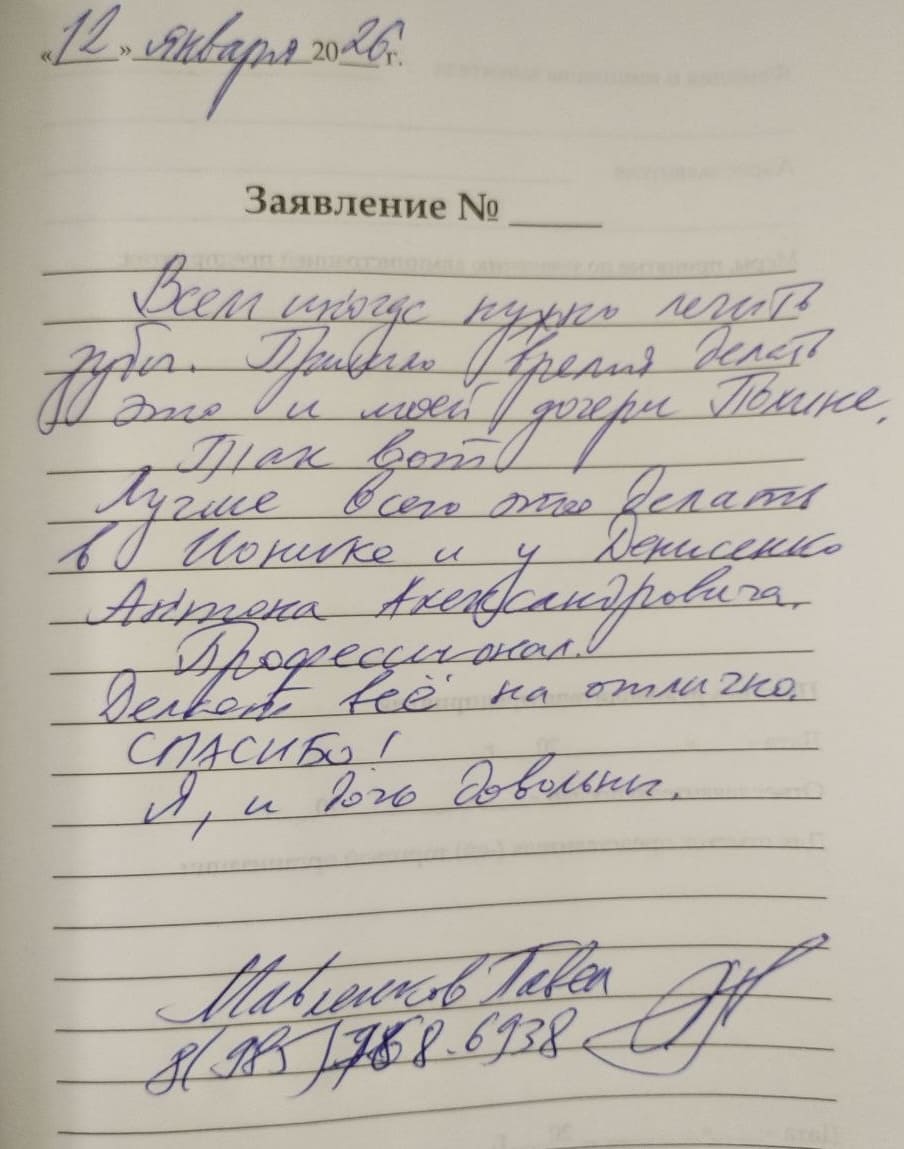 «12» января 2026 г.
Заявление №
Всем иногда нужно лечить
зубы. Пришло время делать
это и моей дочери Полине.
Так вот
Лучше всего это делать
в Ионике и у Денисенко
Антона Александровича.
Профессионал.
Делает всё на отлично.
СПАСИБО!
Я, и дочь довольны.
Павел
8(985) 8-6938